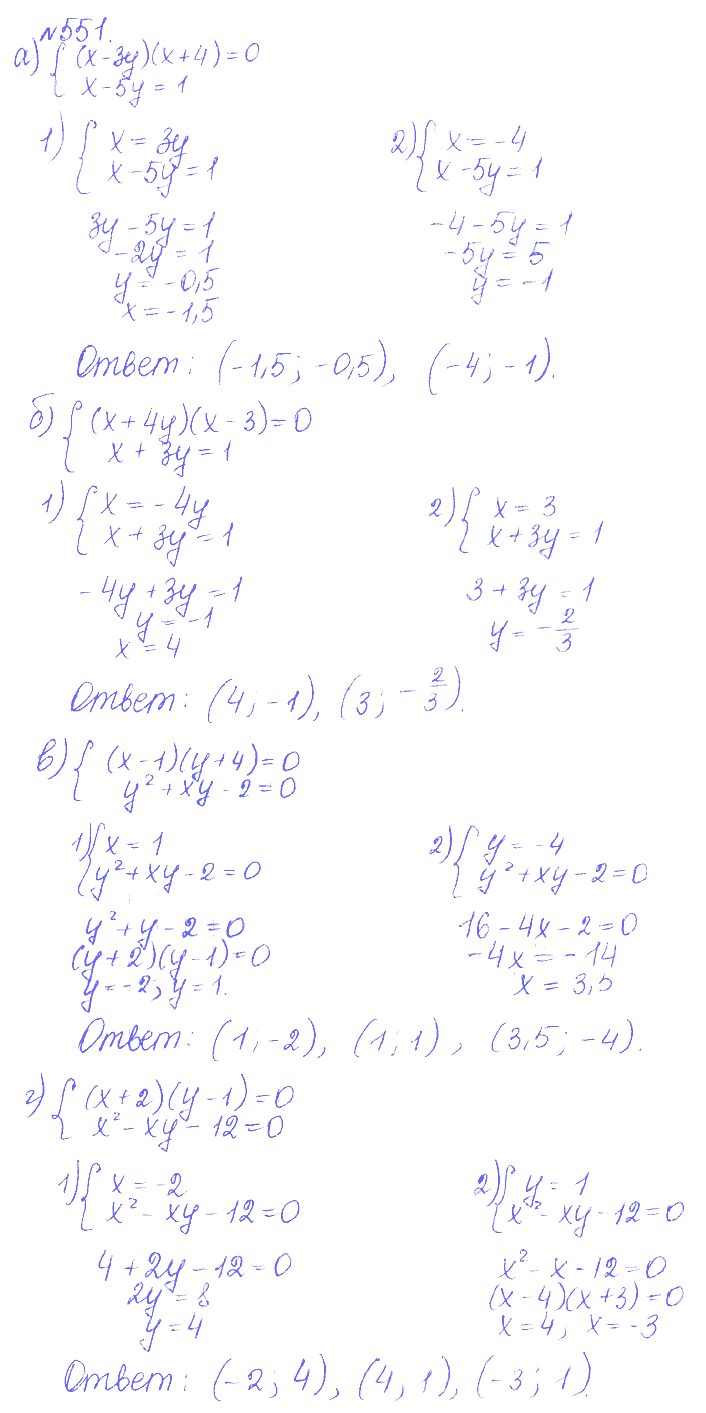 №551.
а) { (x-3y)(x+4)=0
x-5y=1
1) { x=3y
x-5y=1
3y-5y=1
-2y=1
y=-0,5
x=-1,5
2) { x=-4
x-5y=1
-4-5y=1
-5y=5
y=-1
Ответ: (-1,5; -0,5), (-4; -1).
б) { (x+4y)(x-3)=0
x+3y=1
1) { x=-4y
x+3y=1
-4y+3y=1
y=-1
x=4
2) { x=3
x+3y=1
3+3y=1
y=-2/3
Ответ: (4; -1), (3; -2/3).
в) { (x-1)(y+4)=0
y²+xy-2=0
1) { x=1
y²+xy-2=0
y²+y-2=0
(y+2)(y-1)=0
y=-2; y=1.
2) { y=-4
y²+xy-2=0
16-4x-2=0
-4x=-14
x=3,5
Ответ: (1; -2), (1; 1), (3,5; -4).
г) { (x+2)(y-1)=0
x²-xy-12=0
1) { x=-2
x²-xy-12=0
4+2y-12=0
2y=8
y=4
2) { y=1
x²-xy-12=0
x²-x-12=0
(x-4)(x+3)=0
x=4; x=-3
Ответ: (-2; 4), (4; 1), (-3; 1).